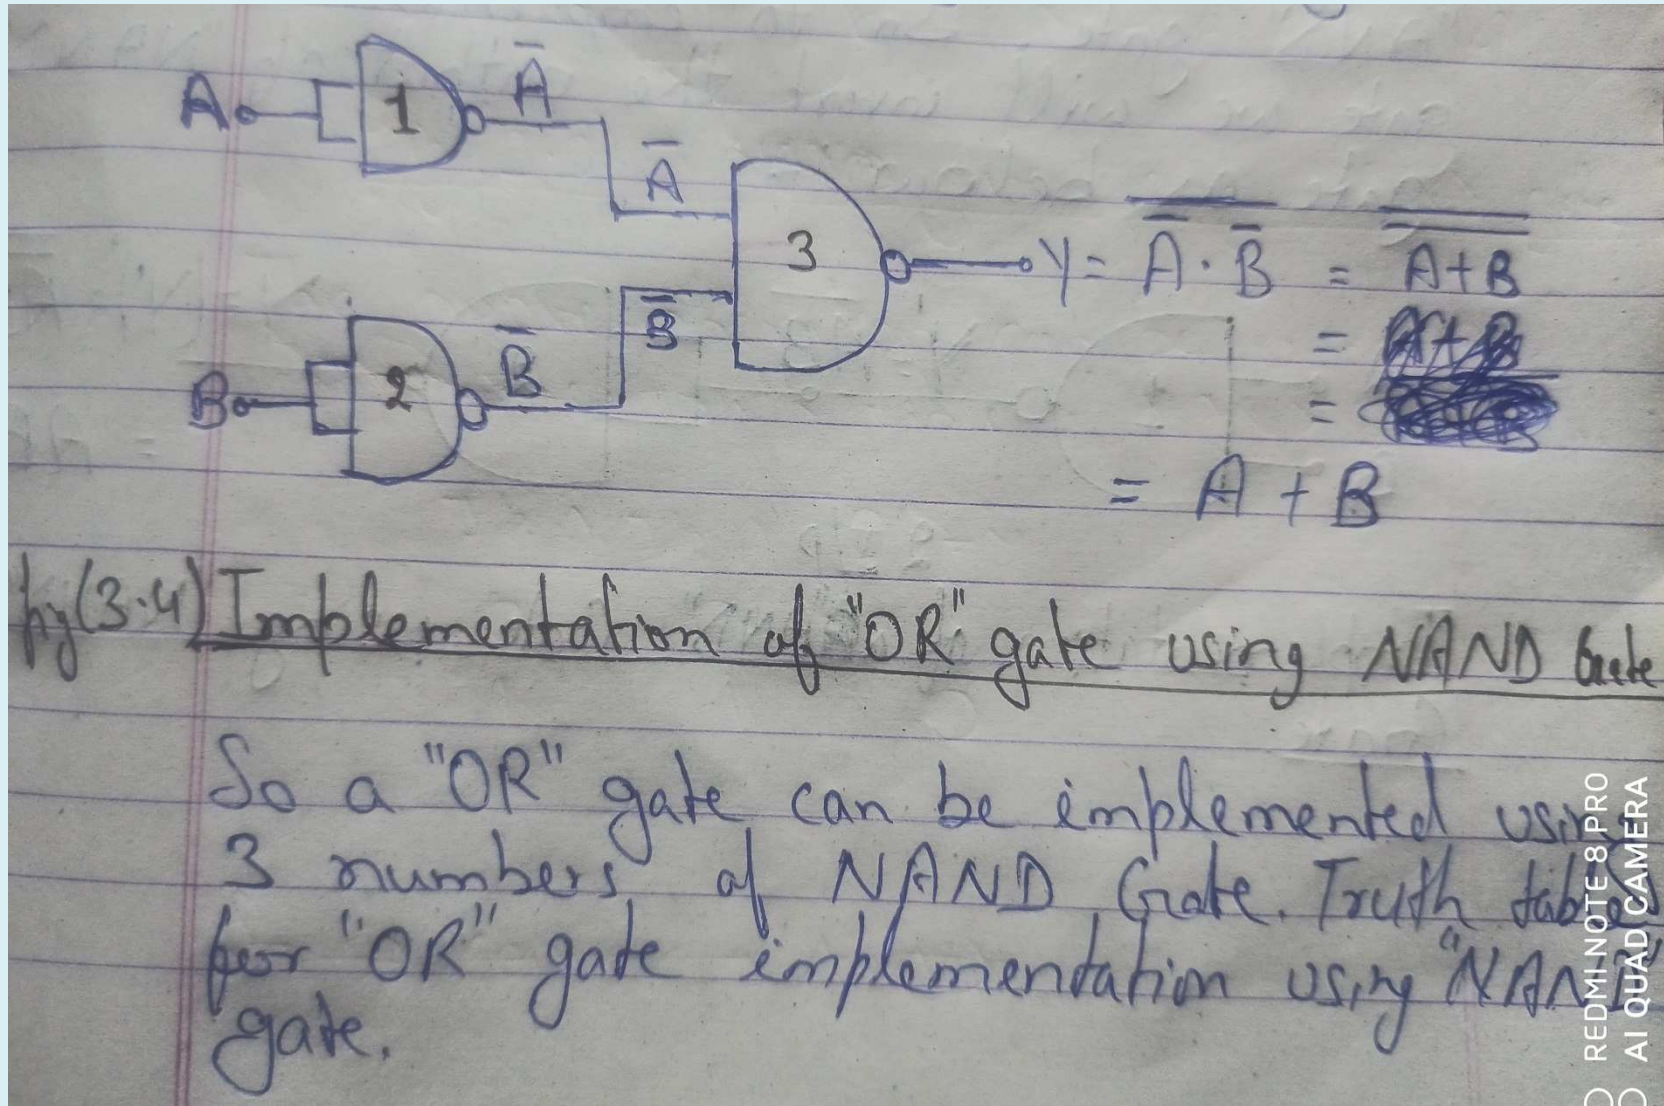 A 1 Ā
Ā
3 Y = \overline{Ā · B̄} = \overline{\overline{A+B}}
B̄
B 2 B̄
=
=
= A + B
fig(3.4) Implementation of "OR" gate using NAND Gate
So a "OR" gate can be implemented using
3 numbers of NAND Gate. Truth tables
for "OR" gate implementation using "NAND"
gate.
REDMI NOTE 8 PRO
AI QUAD CAMERA